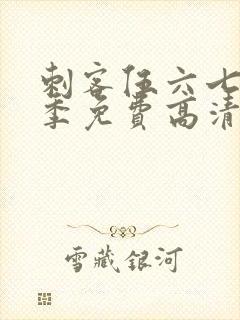 刺客伍六七
季免费高清
雪藏银河